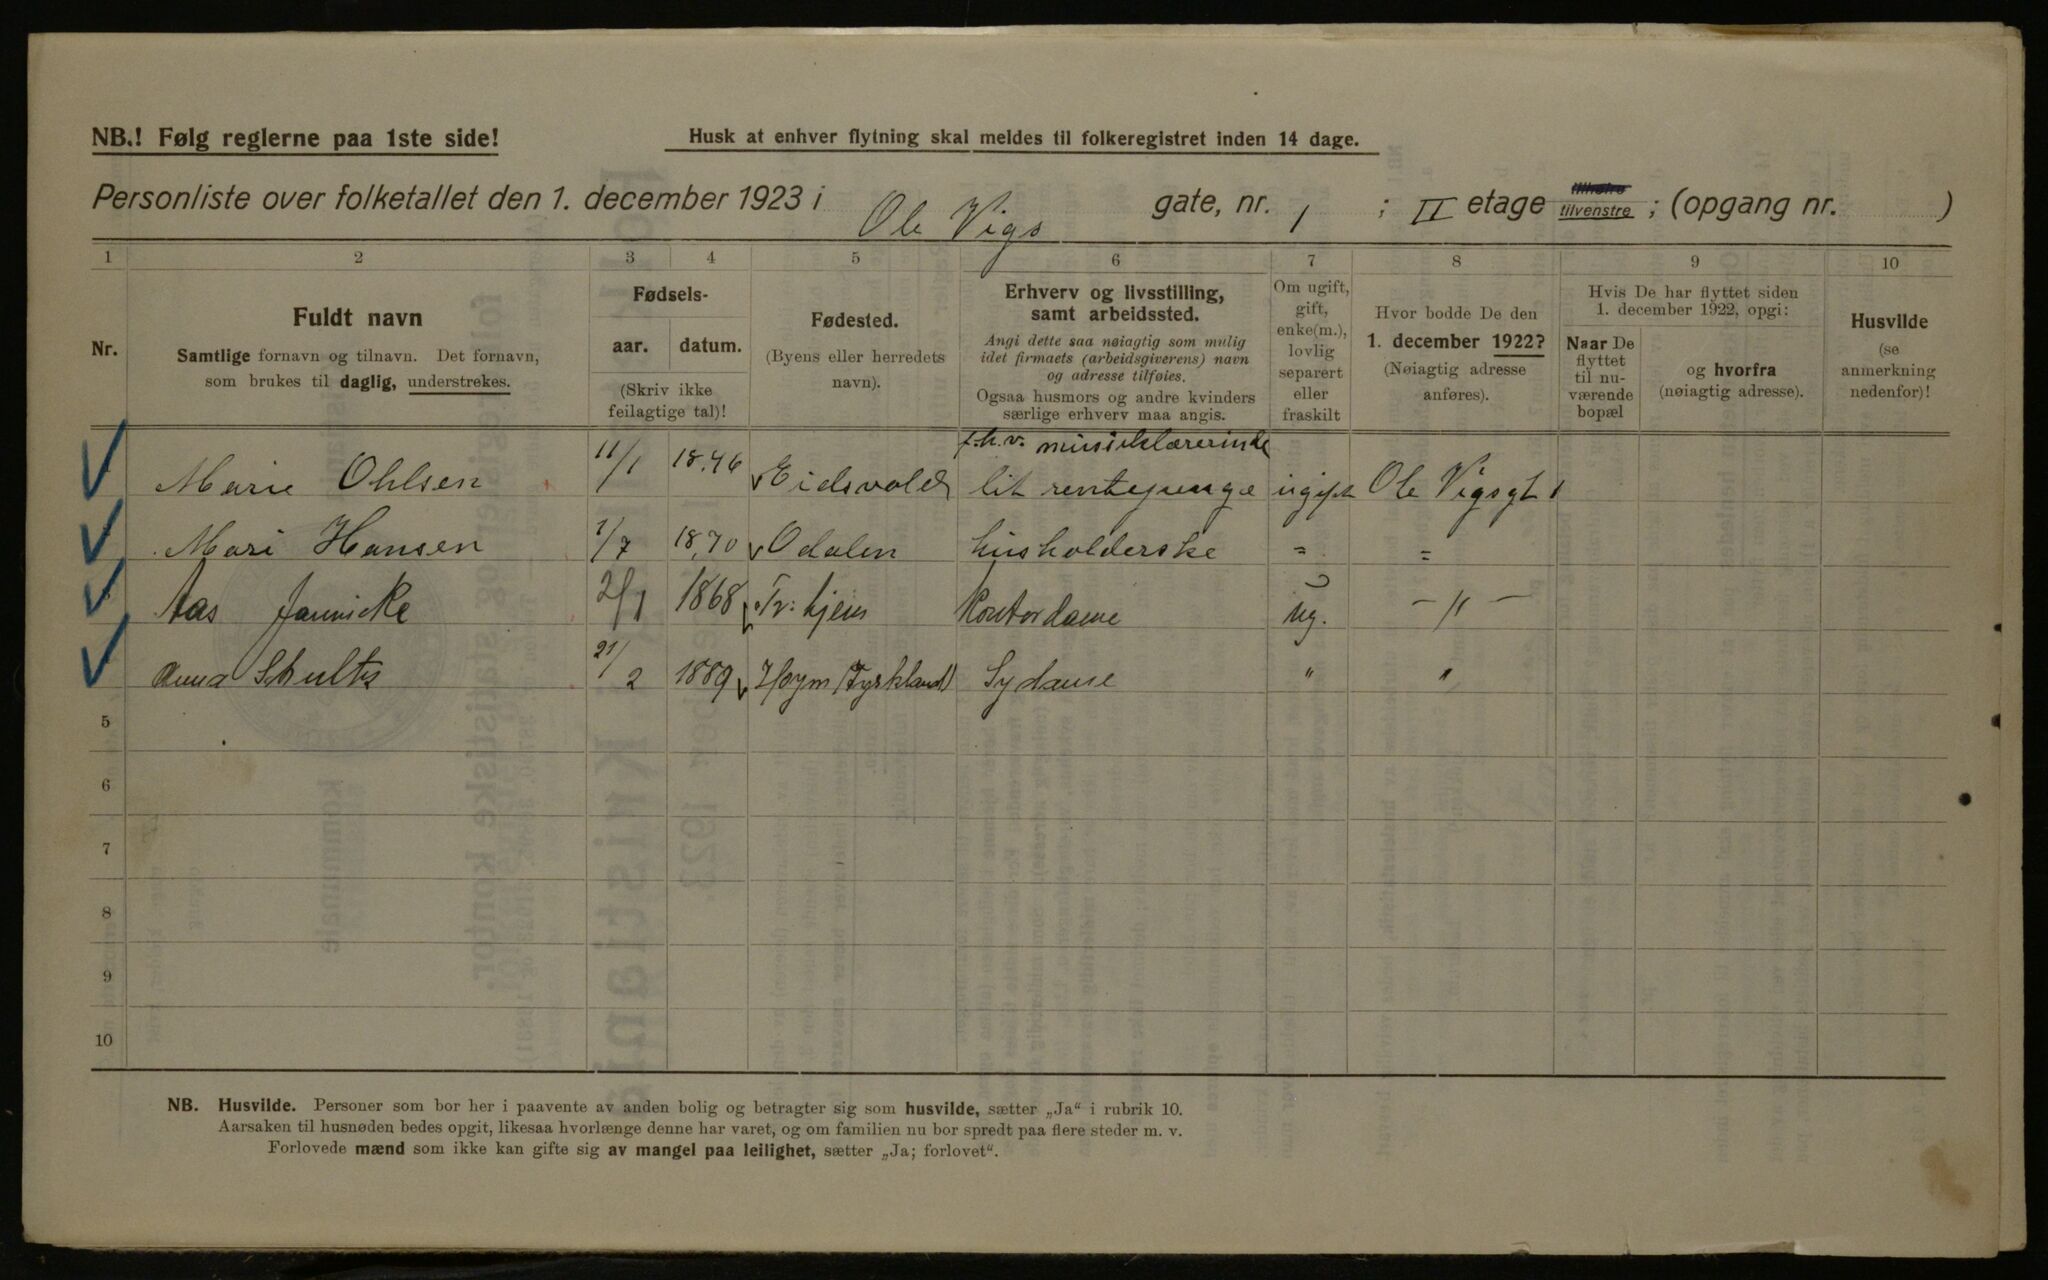 NB.! Følg reglerne paa 1ste side!
Husk at enhver flytning skal meldes til folkeregistret inden 14 dage.
Personliste over folketallet den 1. december 1923 i Ole Vigs gate, nr. 1 ; II etage tilhøire tilvenstre ; (opgang nr. )
1 2 3 4 5 6 7 8 9 10
Nr.
Fuldt navn
Samtlige fornavn og tilnavn. Det fornavn,
som brukes til daglig, understrekes.
Fødsels-
aar. datum.
(Skriv ikke
feilagtige tal)!
Fødested.
(Byens eller herredets
navn).
Erhverv og livsstilling,
samt arbeidssted.
Angi dette saa nøiagtig som mulig
idet firmaets (arbeidsgiverens) navn
og adresse tilføies.
Ogsaa husmors og andre kvinders
særlige erhverv maa angis.
Om ugift,
gift,
enke(m.),
lovlig
separert
eller
fraskilt
Hvor bodde De den
1. december 1922?
(Nøiagtig adresse
anføres).
Hvis De har flyttet siden
1. december 1922, opgi:
Naar De
flyttet
til nu-
værende
bopæl
og hvorfra
(nøiagtig adresse).
Husvilde
(se
anmerkning
nedenfor)!
f.h.v. musiklærerinde
Marie Ohlsen 11/1 18,46 Eidsvold lit rentepenge ugift Ole Vigsgt 1
Mari Hansen 1/7 18,70 Odalen husholderske = =
Aas Jannicke 2/1 1868 Tr:hjem Kontordame ug. - " -
Anna Schultz 21/2 1889 (Tyskland) Sydame " "
5
6
7
8
9
10
NB. Husvilde. Personer som bor her i paavente av anden bolig og betragter sig som husvilde, sætter „Ja“ i rubrik 10.
Aarsaken til husnøden bedes opgit, likesaa hvorlænge denne har varet, og om familien nu bor spredt paa flere steder m. v.
Forlovede mænd som ikke kan gifte sig av mangel paa leilighet, sætter „Ja; forlovet“.